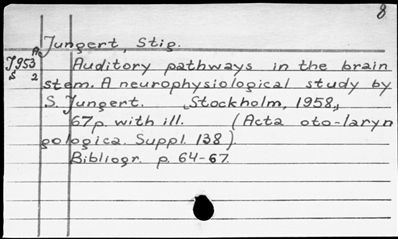 8
Jungert, Stig.
A
J953 Auditory pathways in the brain
S 2 stem. A neurophysiological study by
S. Jungert. Stockholm, 1958,
67p. with ill. (Acta oto-laryn
gologica. Suppl. 138)
Bibliogr. p. 64-67.